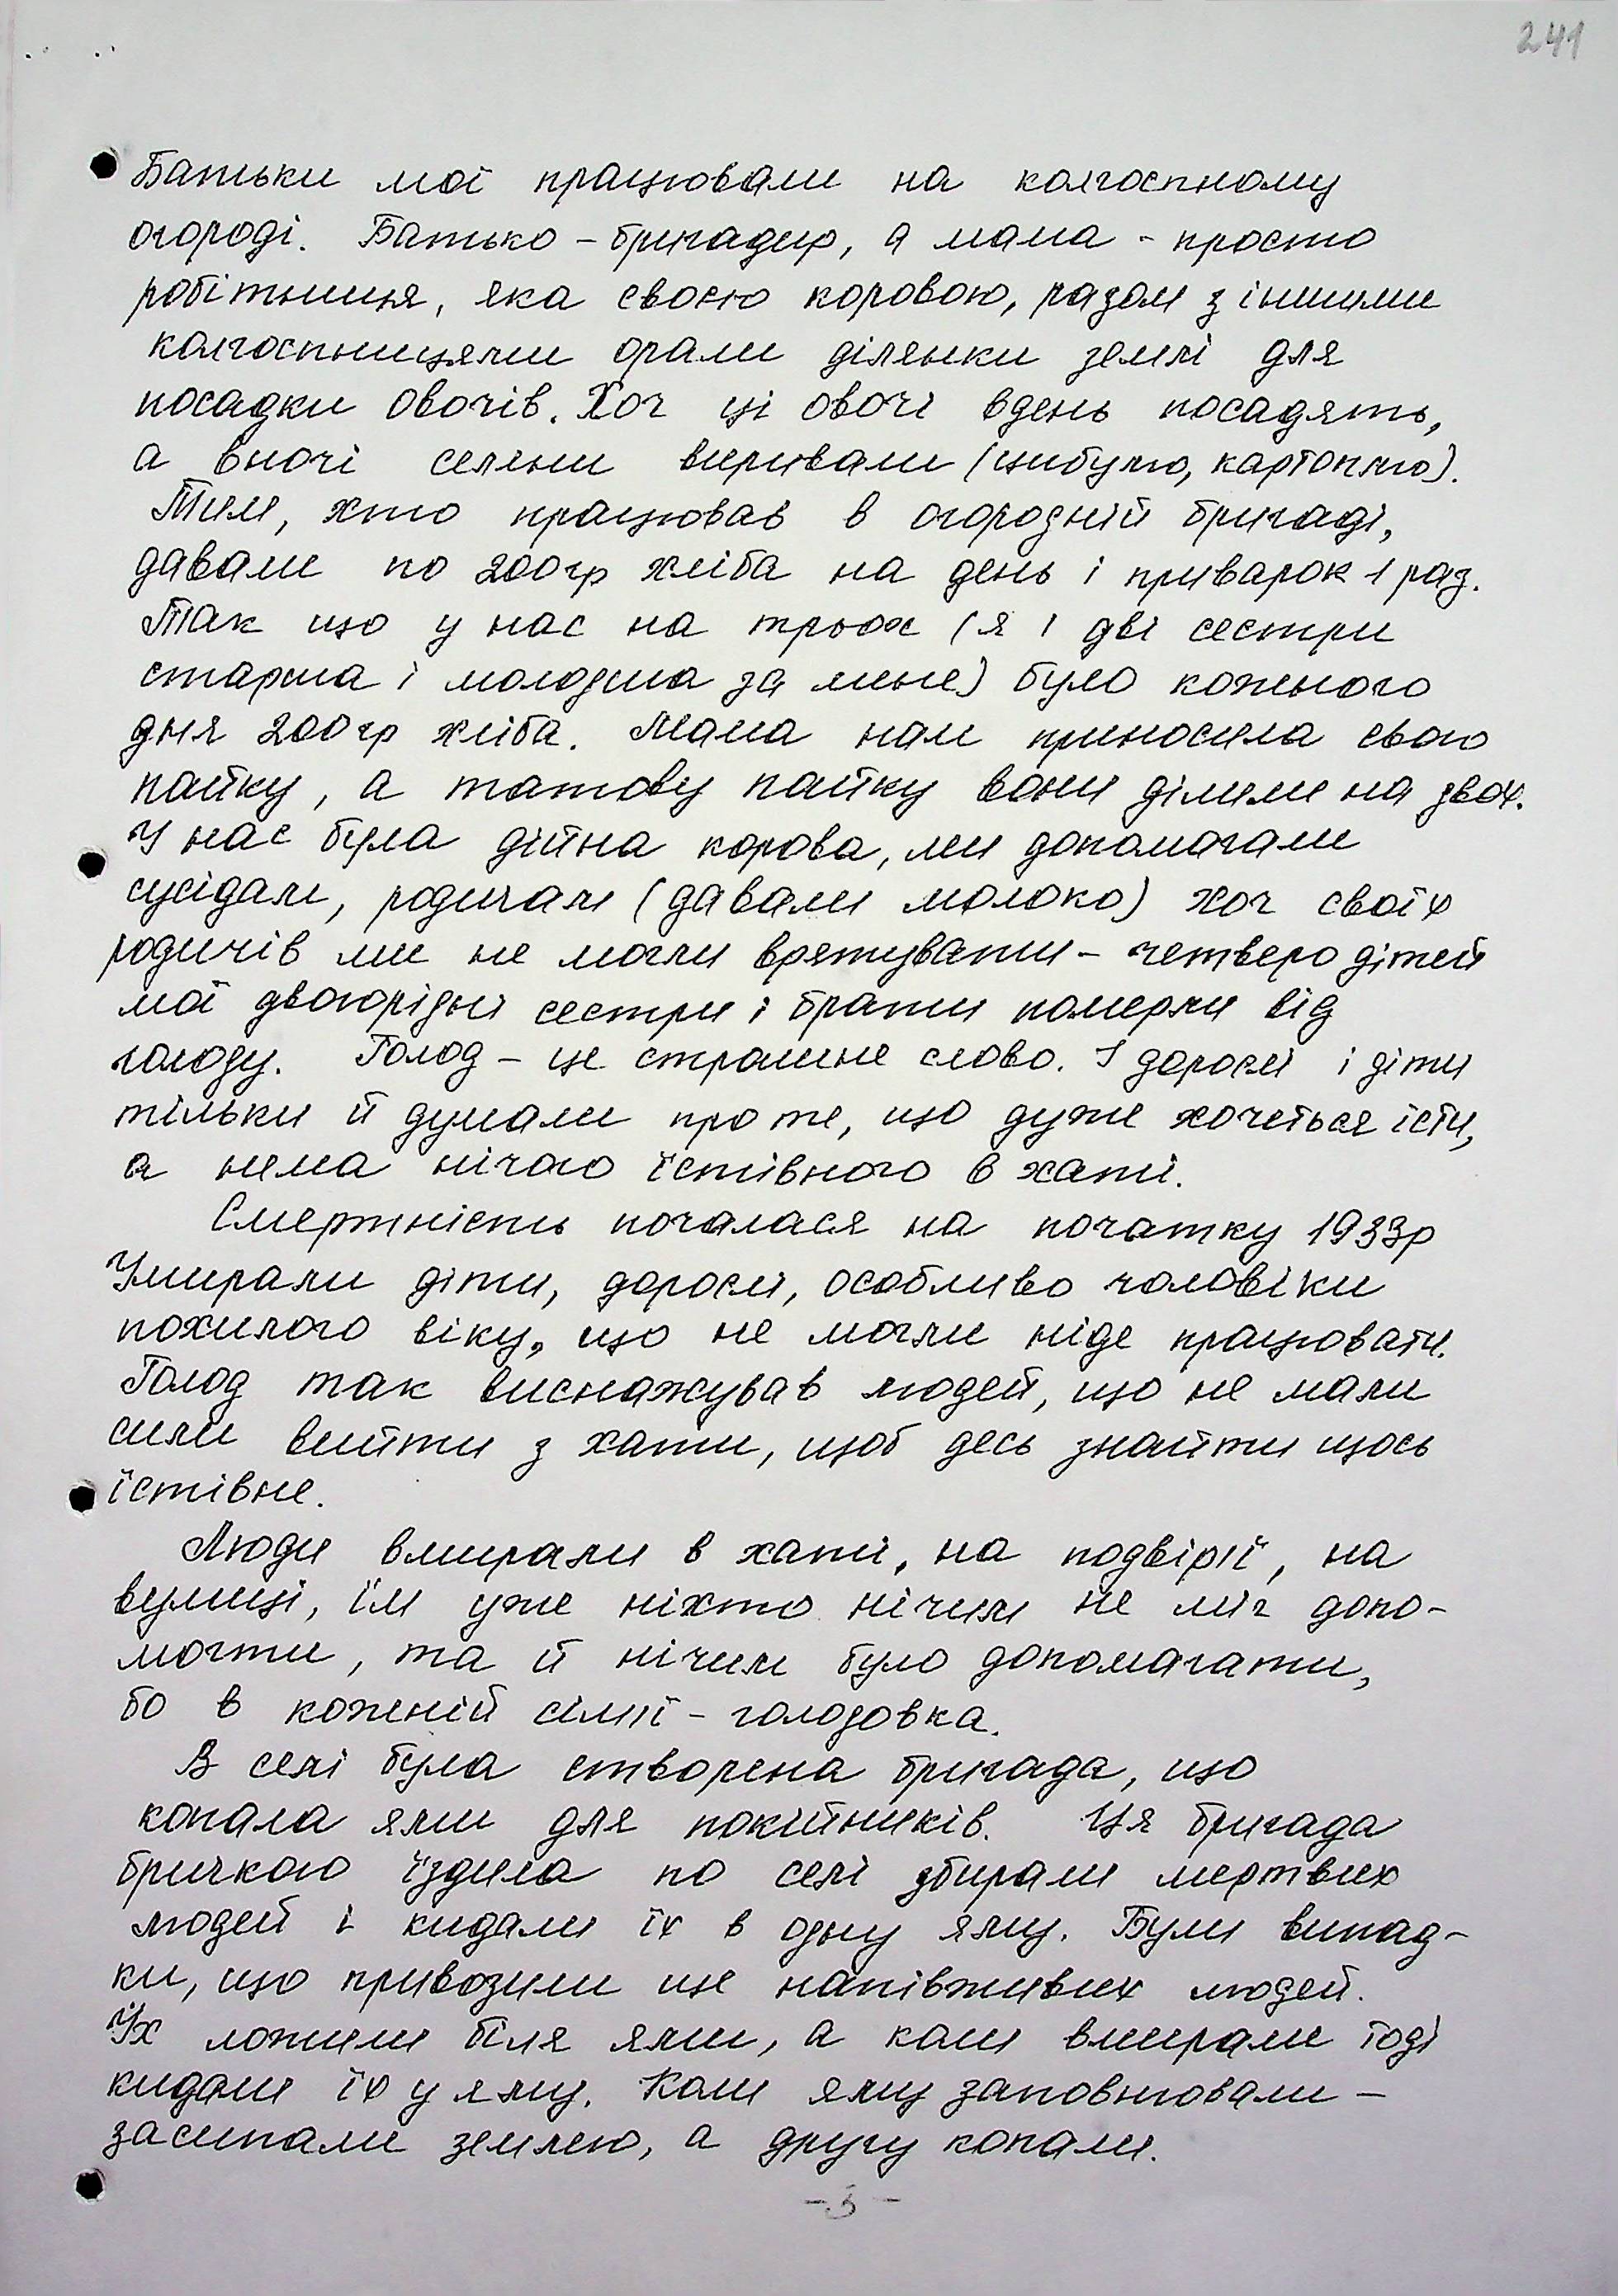 241
Батьки мої працювали на колгоспному
огороді. Батько - бригадир, а мама - просто
робітниця, яка своєю коровою, разом з іншими
колгоспницями орали ділянки землі для
посадки овочів. Хоч ці овочі вдень посадять,
а вночі селяни виривали (цибулю, картоплю).
Тим, хто працював в огородній бригаді,
давали по 200гр хліба на день і приварок 1 раз.
Так що у нас на трьох (я і дві сестри
старша і молодша за мене) було кожного
дня 200гр хліба. Мама нам приносила свою
пайку, а татову пайку вони ділили на двох.
У нас була дійна корова, ми допомагали
сусідам, родичам (давали молоко) хоч своїх
родичів ми не могли врятувати - четверо дітей
мої двоюрідні сестри і брати померли від
голоду. Голод - це страшне слово. І дорослі і діти
тільки й думали про те, що дуже хочеться їсти,
а нема нічого їстівного в хаті.
Смертність почалася на початку 1933р
Умирали діти, дорослі, особливо чоловіки
похилого віку, що не могли ніде працювати.
Голод так виснажував людей, що не мали
сили вийти з хати, щоб десь знайти щось
їстівне.
Люди вмирали в хаті, на подвірї, на
вулиці, їм уже ніхто нічим не міг допо-
могти, та й нічим було допомагати,
бо в кожній сімї - голодовка.
В селі була створена бригада, що
копала ями для покійників. Ця бригада
бричкою їздила по селі збирали мертвих
людей і кидали їх в одну яму. Були випад-
ки, що привозили ще напівживих людей.
Їх ложили біля ями, а коли вмирали тоді
кидали їх у яму. Коли яму заповнювали -
засипали землею, а другу копали.
- 3 -